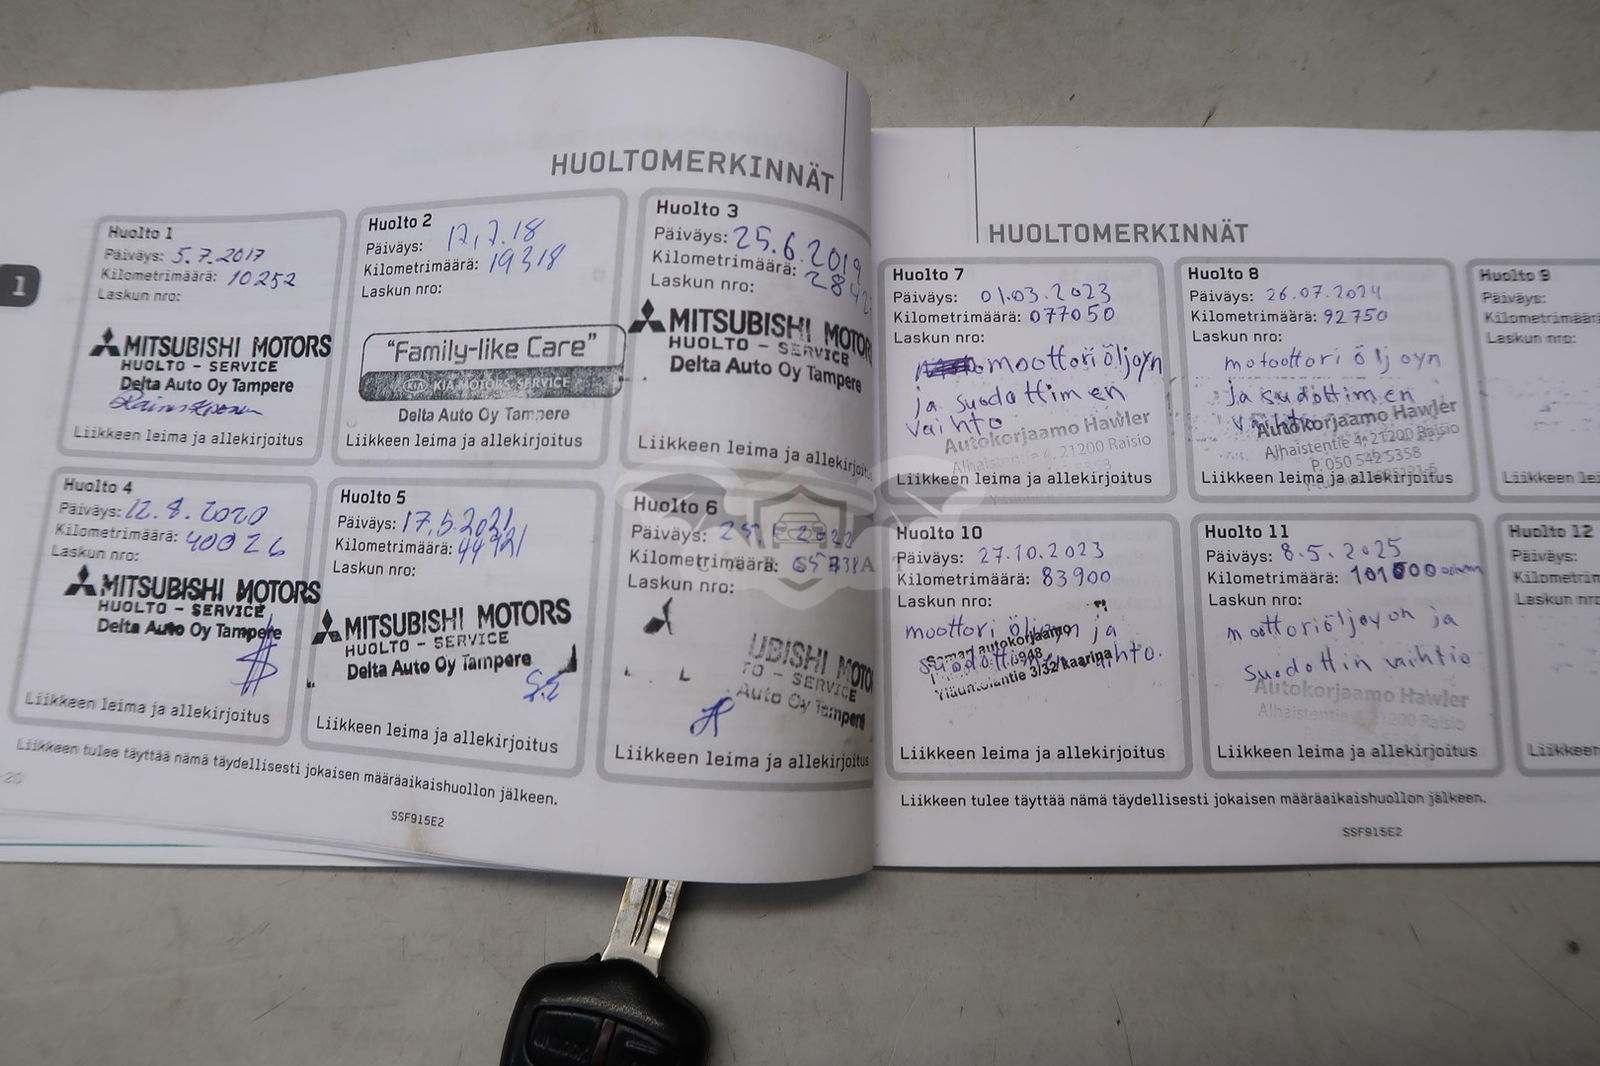 1
HUOLTOMERKINNÄT
Huolto 1
Päiväys: 5.7.2017
Kilometrimäärä: 10252
Laskun nro:
MITSUBISHI MOTORS
HUOLTO - SERVICE
Delta Auto Oy Tampere
Liikkeen leima ja allekirjoitus
Huolto 2
Päiväys: 17.7.18
Kilometrimäärä: 19318
Laskun nro:
"Family-like Care"
KIA KIA MOTORS SERVICE
Delta Auto Oy Tampere
Liikkeen leima ja allekirjoitus
Huolto 3
Päiväys: 25.6.2019
Kilometrimäärä:
Laskun nro:
MITSUBISHI MOTOR
HUOLTO - SERVICE
Delta Auto Oy Tampere
Liikkeen leima ja allekirjoit
Huolto 4
Päiväys: 12.8.2020
Kilometrimäärä: 40026
Laskun nro:
MITSUBISHI MOTORS
HUOLTO - SERVICE
Delta Auto Oy Tampere
Liikkeen leima ja allekirjoitus
Huolto 5
Päiväys: 17.5.2021
Kilometrimäärä:
Laskun nro:
MITSUBISHI MOTORS
HUOLTO - SERVICE
Delta Auto Oy Tampere
Liikkeen leima ja allekirjoitus
Huolto 6
Päiväys:
Kilometrimäärä:
Laskun nro:
UBISHI MOTO
TO - SERVICE
Auto Oy Tampere
Liikkeen leima ja allekirjoitus
Liikkeen tulee täyttää nämä täydellisesti jokaisen määräaikaishuollon jälkeen.
-20
SSF915E2
HUOLTOMERKINNÄT
Huolto 7
Päiväys: 01.03.2023
Kilometrimäärä: 077050
Laskun nro:
moottoriöljyn
ja suodattimen
vaihto
Autokorjaamo Hawler
Alhaistentie 4, 21200 Raisio
Liikkeen leima ja allekirjoitus
Huolto 8
Päiväys: 26.07.2024
Kilometrimäärä: 92750
Laskun nro:
motoottori öljyn
ja sudattimen
vaihto
Autokorjaamo Hawler
Alhaistentie 4, 21200 Raisio
P. 050 542 5358
Liikkeen leima ja allekirjoitus
Huolto 9
Päiväys:
Kilometrimäärä
Laskun nro:
Liikkeen lei
Huolto 10
Päiväys: 27.10.2023
Kilometrimäärä: 83900
Laskun nro:
moottori öljyn ja
vaihto.
autokorjaamo
3/32 kaarina
Liikkeen leima ja allekirjoitus
Huolto 11
Päiväys: 8.5.2025
Kilometrimäärä: 101000
Laskun nro:
moottoriöljyon ja
suodottin vaihtio
Autokorjaamo Hawler
Alhaistentie 4, 21200 Raisio
Liikkeen leima ja allekirjoitus
Huolto 12
Päiväys:
Kilometrim
Laskun nro
Liikkeen
Liikkeen tulee täyttää nämä täydellisesti jokaisen määräaikaishuollon jälkeen.
SSF915E2